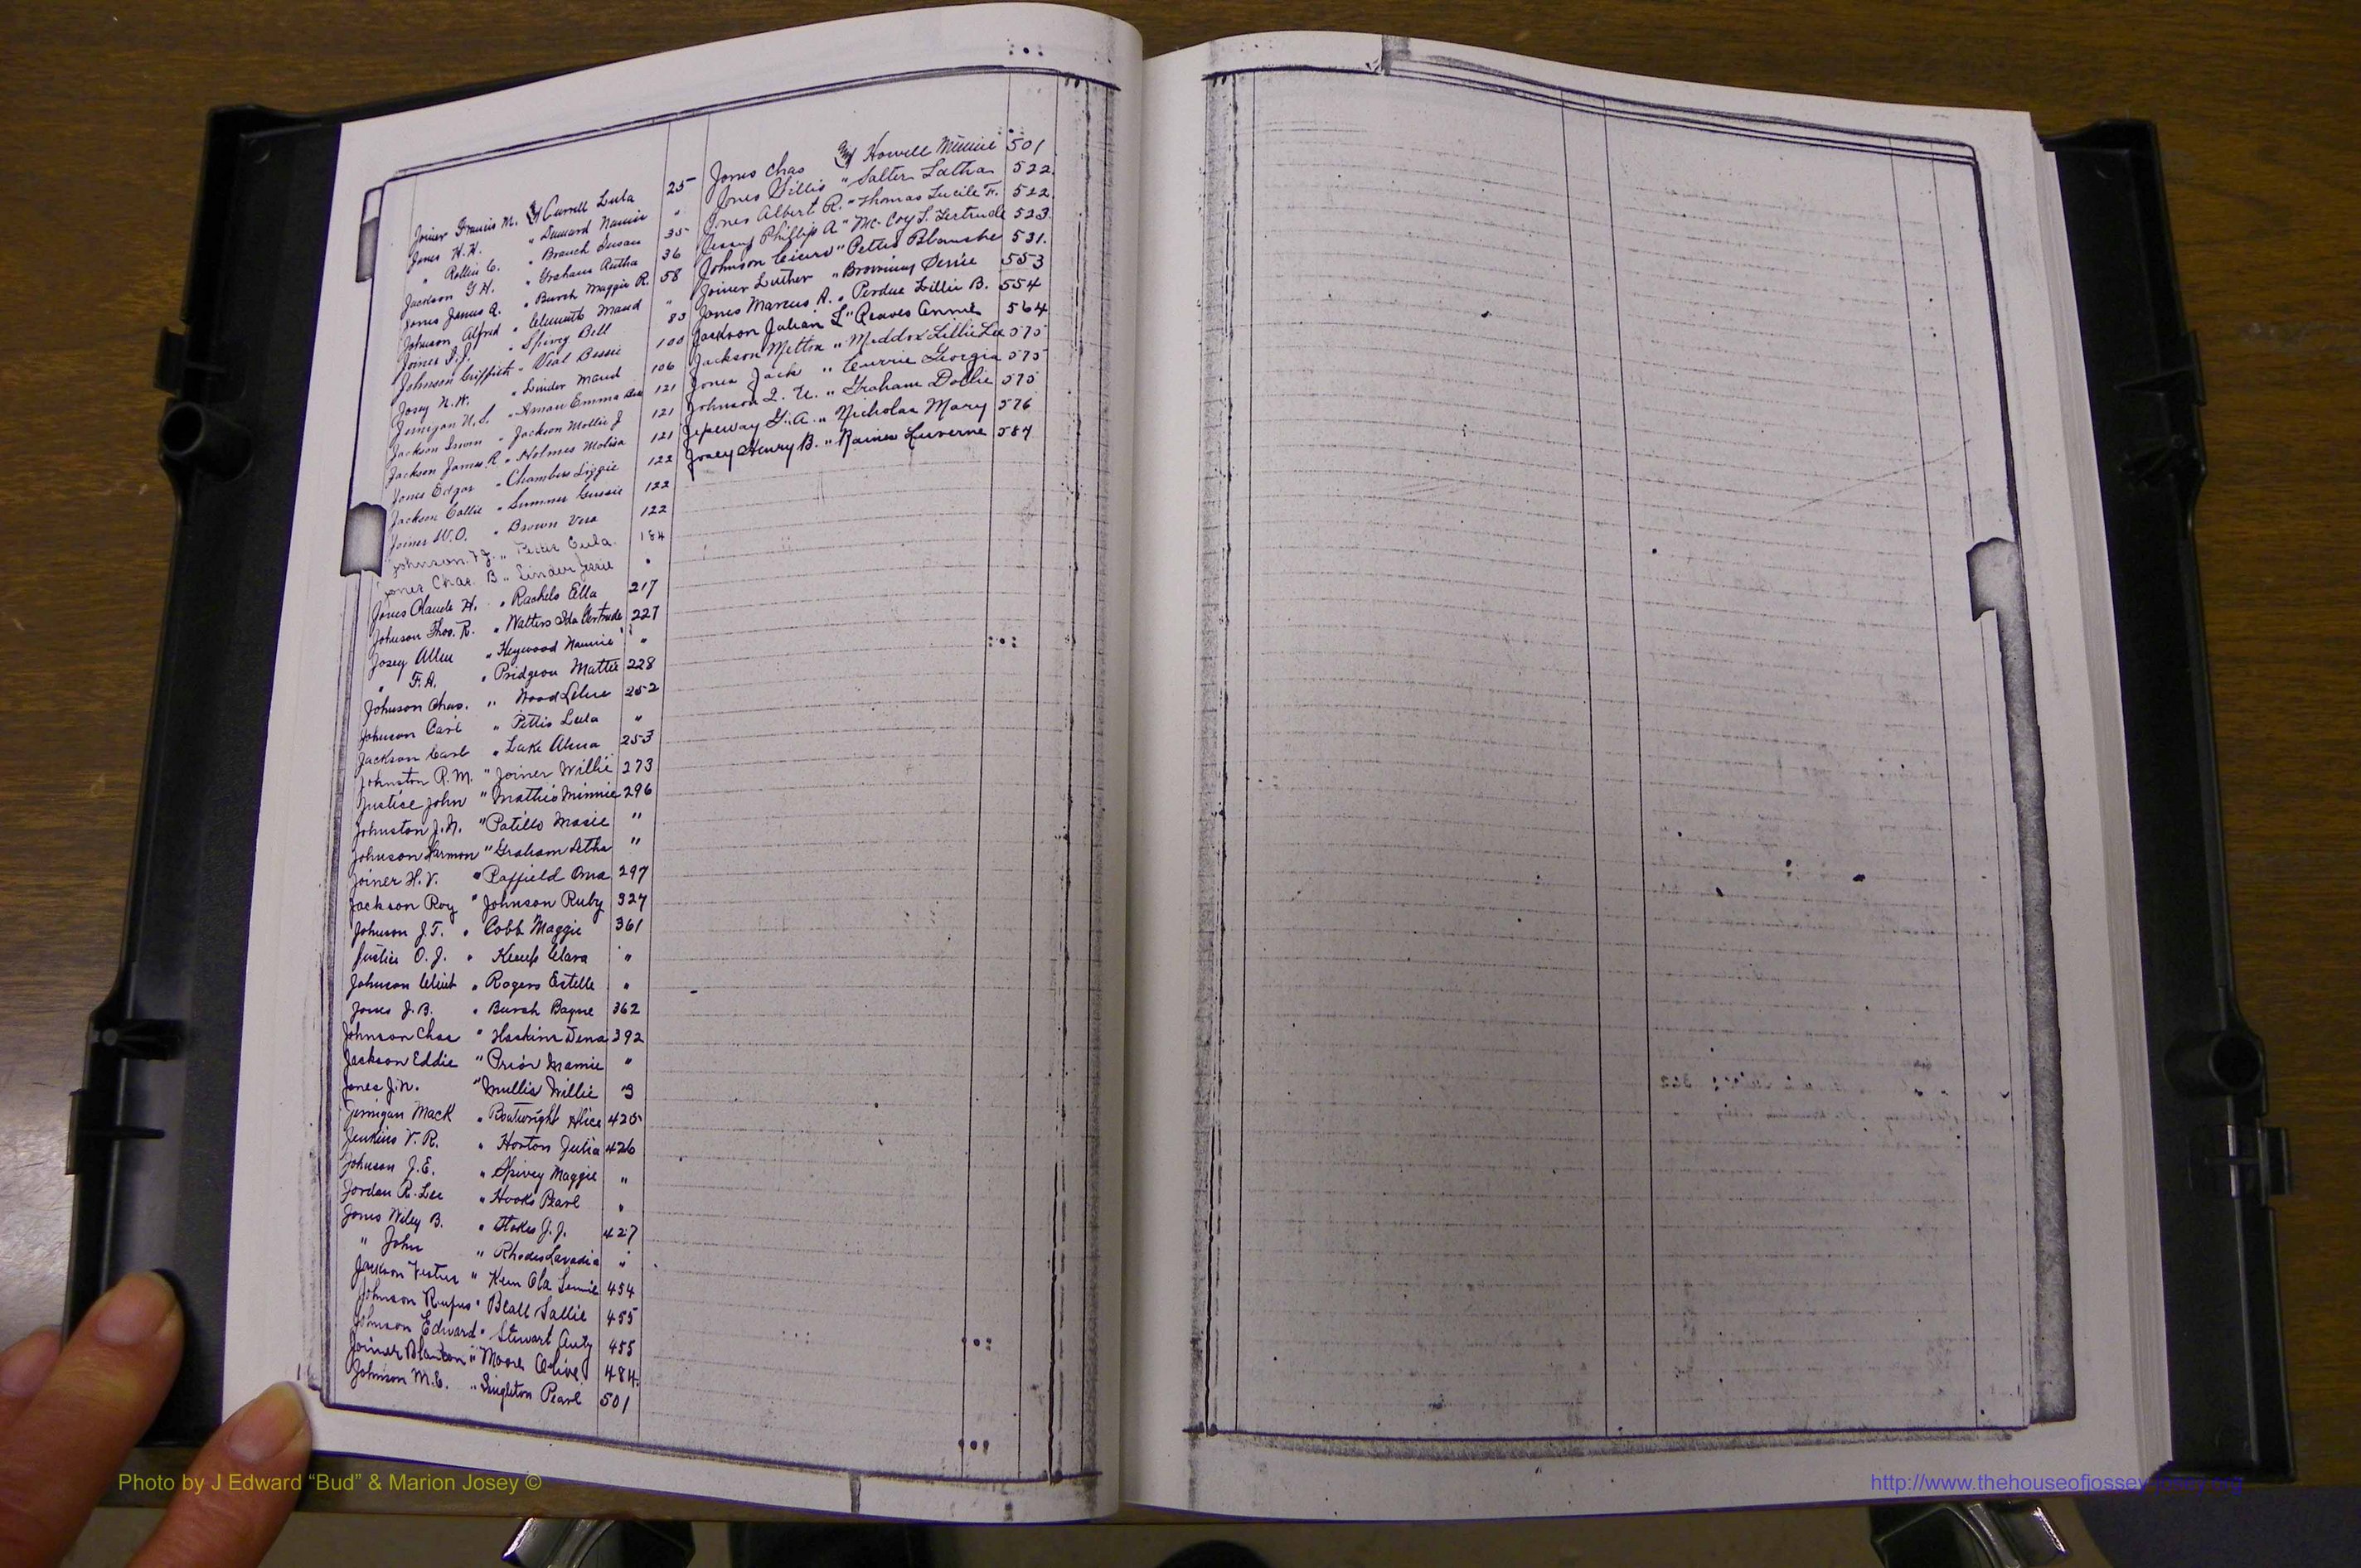 Joiner Francis M. & Currell Lula 25
Jones H.H. " Durrard Nannie "
" Rollin C. " Branch Susan 35
Jackson G.H. " Graham Rutha 36
Jones James A. " Burch Maggie R. 58
Johnson Alfred " Clements Maud "
Joiner " Spivey Bell 83
Johnson Griffith " Veal Bessie 100
Josey N.H. " Linder Maud 106
Jernigan " Emma 121
Jackson Irwin " Jackson Mollie J 121
Jackson James R. " Holmes Melisa 121
Jones Edgar " Chambers Lizzie 122
Jackson Collie " Sumner Gussie 122
Joiner W.O. " Brown Vera 122
Johnson " Eula 184
Jones Chas. B " Linder Jessie "
Jones Claude H. " Rachels Ella 217
Johnson Thos. R. " Walters Ida Gertrude 227
Josey Allen " Heywood Nannie "
" F.A. " Pridgeon Mattie 228
Johnson Chas. " Wood 252
Johnson Carl " Pettis Lula "
Jackson Carl " Lake Alma 253
Johnston R.M. " Joiner Willie 273
Justice John " Mathis Minnie 296
Johnston J.N. " Patillo Masie "
Johnson Harmon " Graham Letha "
Joiner H.V. " Oma 297
Jackson Roy " Johnson Ruby 327
Johnson J.T. " Cobb Maggie 361
Justice O.J. " Kemp Clara "
Johnson Clint " Rogers Estelle "
Jones J.B. " Burch Bayne 362
Johnson Chas " Haskins Dena 392
Jackson Eddie " Prior Mamie "
Jones J.N. " Mullis Willie "
Jernigan Mack " Boatwright Alice 425
Jenkins V.R. " Horton Julia 426
Johnson J.E. " Spivey Maggie "
Jordan R. Lee " Hooks Pearl "
Jones Wiley B. " Stokes J.J. 427
" John " Rhodes Lavadia "
Jackson Vester " Ola 454
Johnson Rufus " Beall Sallie 455
Johnson Edward " Stewart 455
Joiner " Moore Olive 484
Johnson M.E. " Singleton Pearl 501
Jones Chas & Howell Minnie 501
Jones Willis " Salter Latha 522
Jones Albert R. " Thomas Lucile F. 522
Jessup Phillip A " McCoy L. Gertrude 523
Johnson Cicero " Pettis Blanche 531
Joiner Luther " Browning 553
Jones Marcus A. " Perdue Lillie B. 554
Jackson Julian L " Reaves Annie 564
Jackson Melton " Maddox Lillie Lee 575
Jones Jack " Currie Georgia 575
Johnson " Graham Dollie 575
G.A. " Nicholas Mary 576
Josey Henry B. " Raines Luverne 584
Photo by J Edward “Bud” & Marion Josey ©
http://www.thehouseofjossey-josey.org